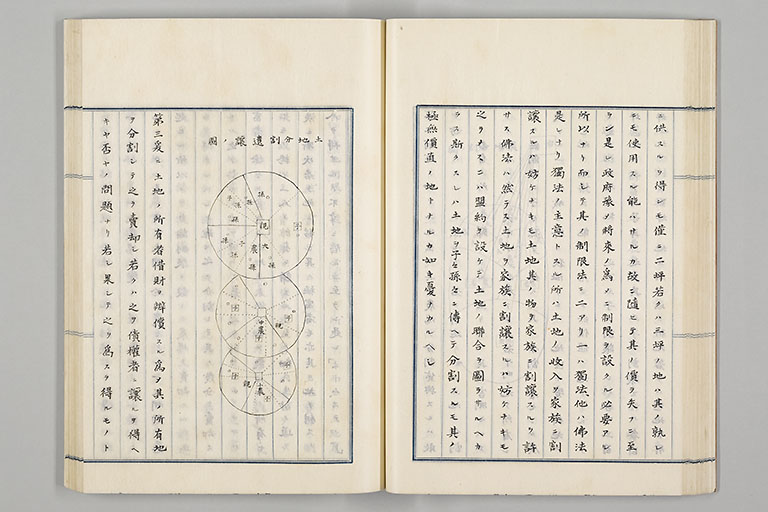 ニ供スルヲ得レモ僅ニ二坪若クハ三坪ノ地ハ其孰レ
ニモ使用スル能ハサルカ故ニ隨ヒテ其ノ價ヲ失フニ至
ラン是レ政府豫メ將來ノ爲メニ制限ヲ設クル必要アル
所以ナリ而シテ其ノ制限法ニ二アリ一ハ獨法他ハ佛法
是レナリ獨法ノ主意トスル所ハ土地ノ收入ヲ家族ニ割
讓スルハ妨ケナキモ土地其ノ物ヲ家族ニ割讓スルヲ許
サス佛法ハ然ラス土地ヲ家族ニ割讓スルハ妨ケナキモ
之ヲナスニハ盟約ヲ設ケテ土地ノ聯合ヲ圖ラサルヘカ
ラス斯クスレハ土地ヲ子々孫々ニ傳ヘテ分割スルモ其ノ
極無價直ノ地トナルカ如キ憂ナカルヘシ
土地分割遺讓ノ圖
親
大農
子
孫
孫
孫
子
孫
孫
孫
子
親
中農
子
子
親
小農
子
子
第三爰ニ土地ノ所有者借財ヲ辨償スル爲ヲ其ノ所有地
ヲ分割シテ之ヲ賣却シ若クハ之ヲ債權者ニ讓ルヲ得ヘ
キヤ否ヤノ問題ナリ若シ果シテ之ヲ爲スヲ得ルモノト